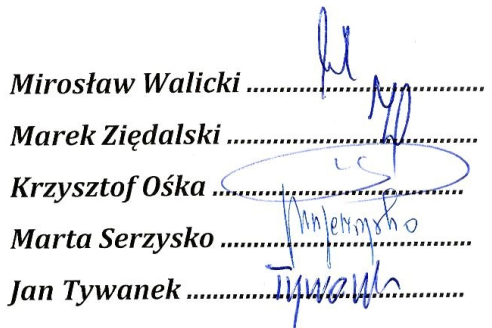 Mirosław Walicki ........................................
Marek Ziędalski ..........................................
Krzysztof Ośka ..........................................
Marta Serzysko ..........................................
Jan Tywanek ..............................................